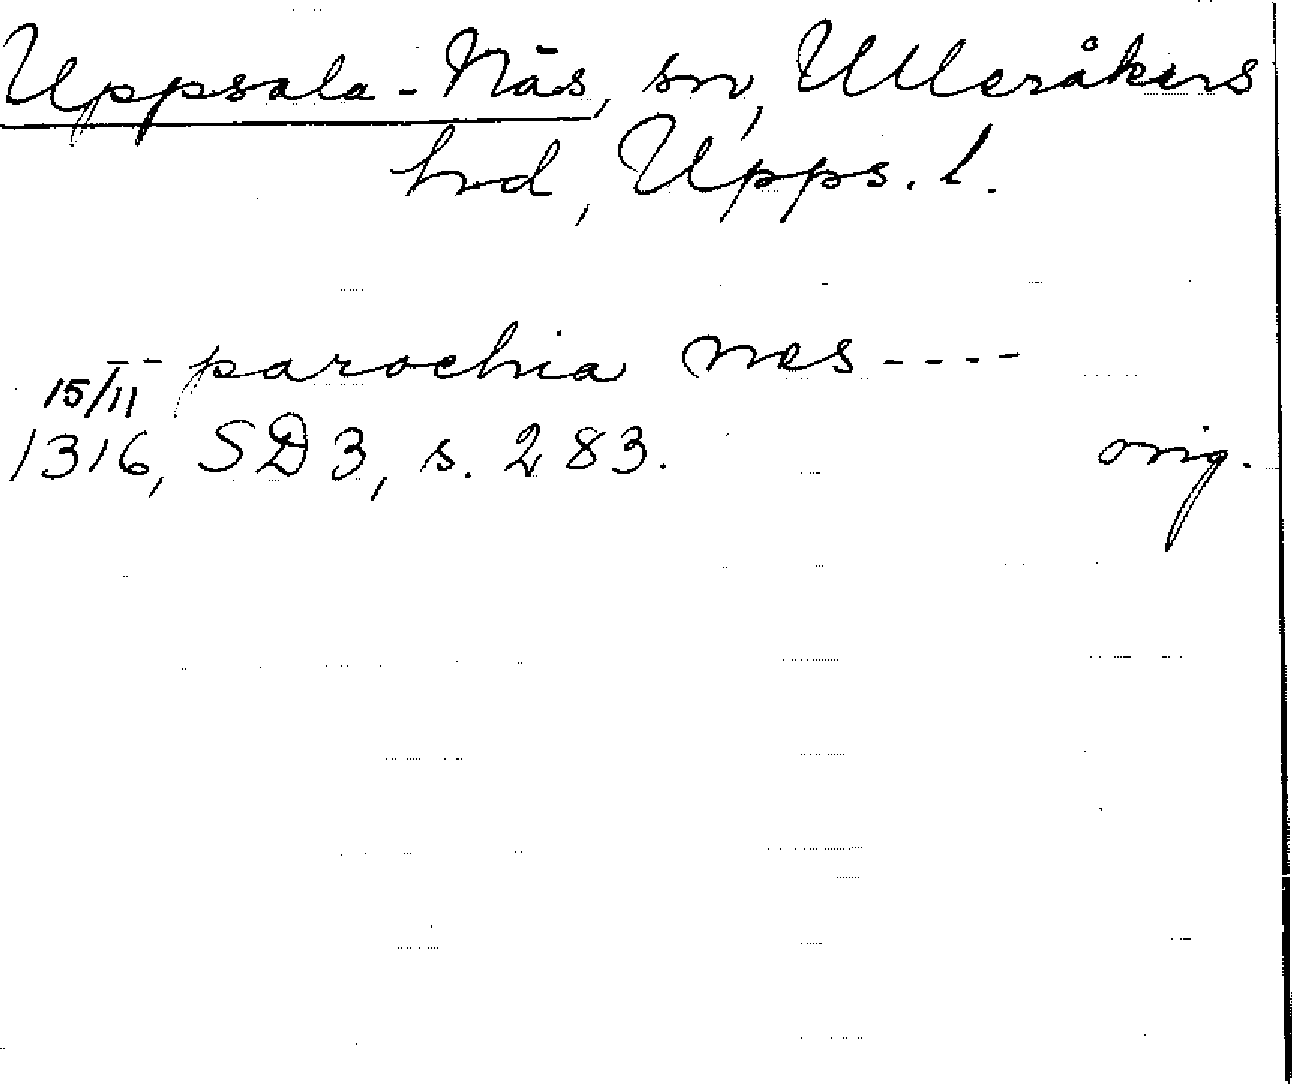 Uppsala-Näs, sn, Ulleråkers
hrd, Upps. l.
-- parochia næs ----
15/11
1316, SD 3, s. 283. orig.